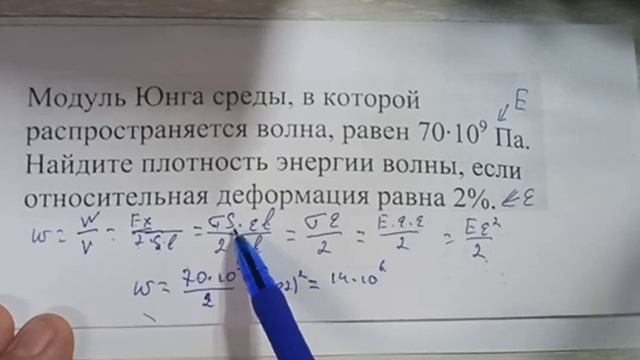 Модуль Юнга среды, в которой E
распространяется волна, равен 70·10⁹ Па.
Найдите плотность энергии волны, если
относительная деформация равна 2%. ε
w = W/V = Fx/2·Sl = σS·εl/2 l = σε/2 = E·ε·ε/2 = Eε²/2
w = 70·10 /2 2)² = 14·10⁶